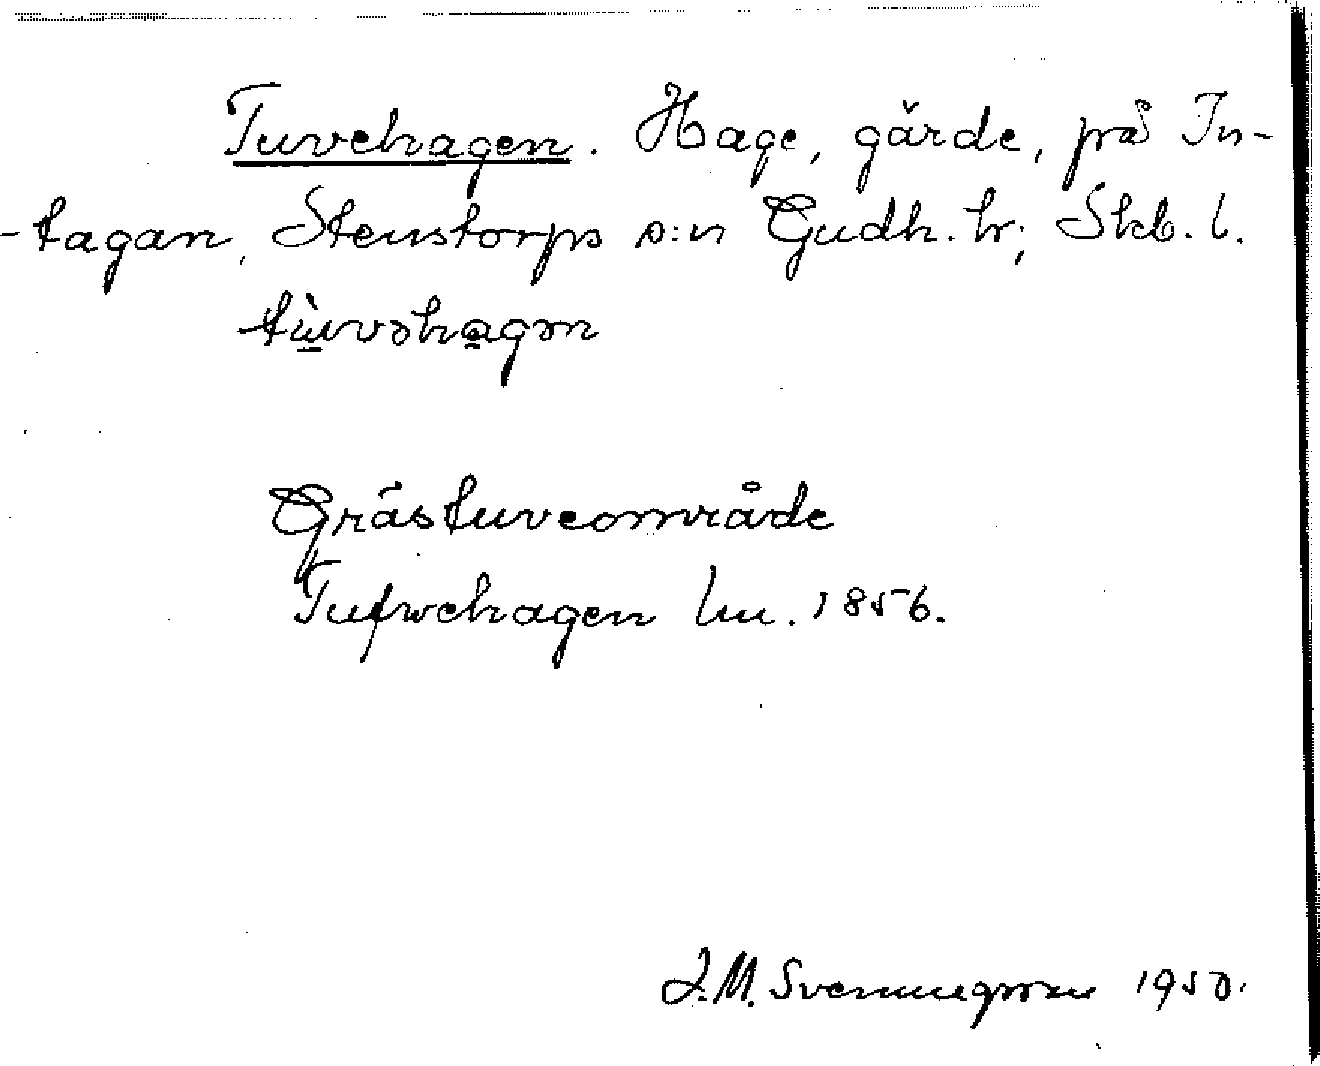 Tuvehagen. Hage, gärde, på In-
-tagan, Stenstorps s:n Gudh. hr; Skb. l.
tùvəhagən
Grästuveområde
Tufwehagen lm. 1856.
J.M. Svenungsson 1950.